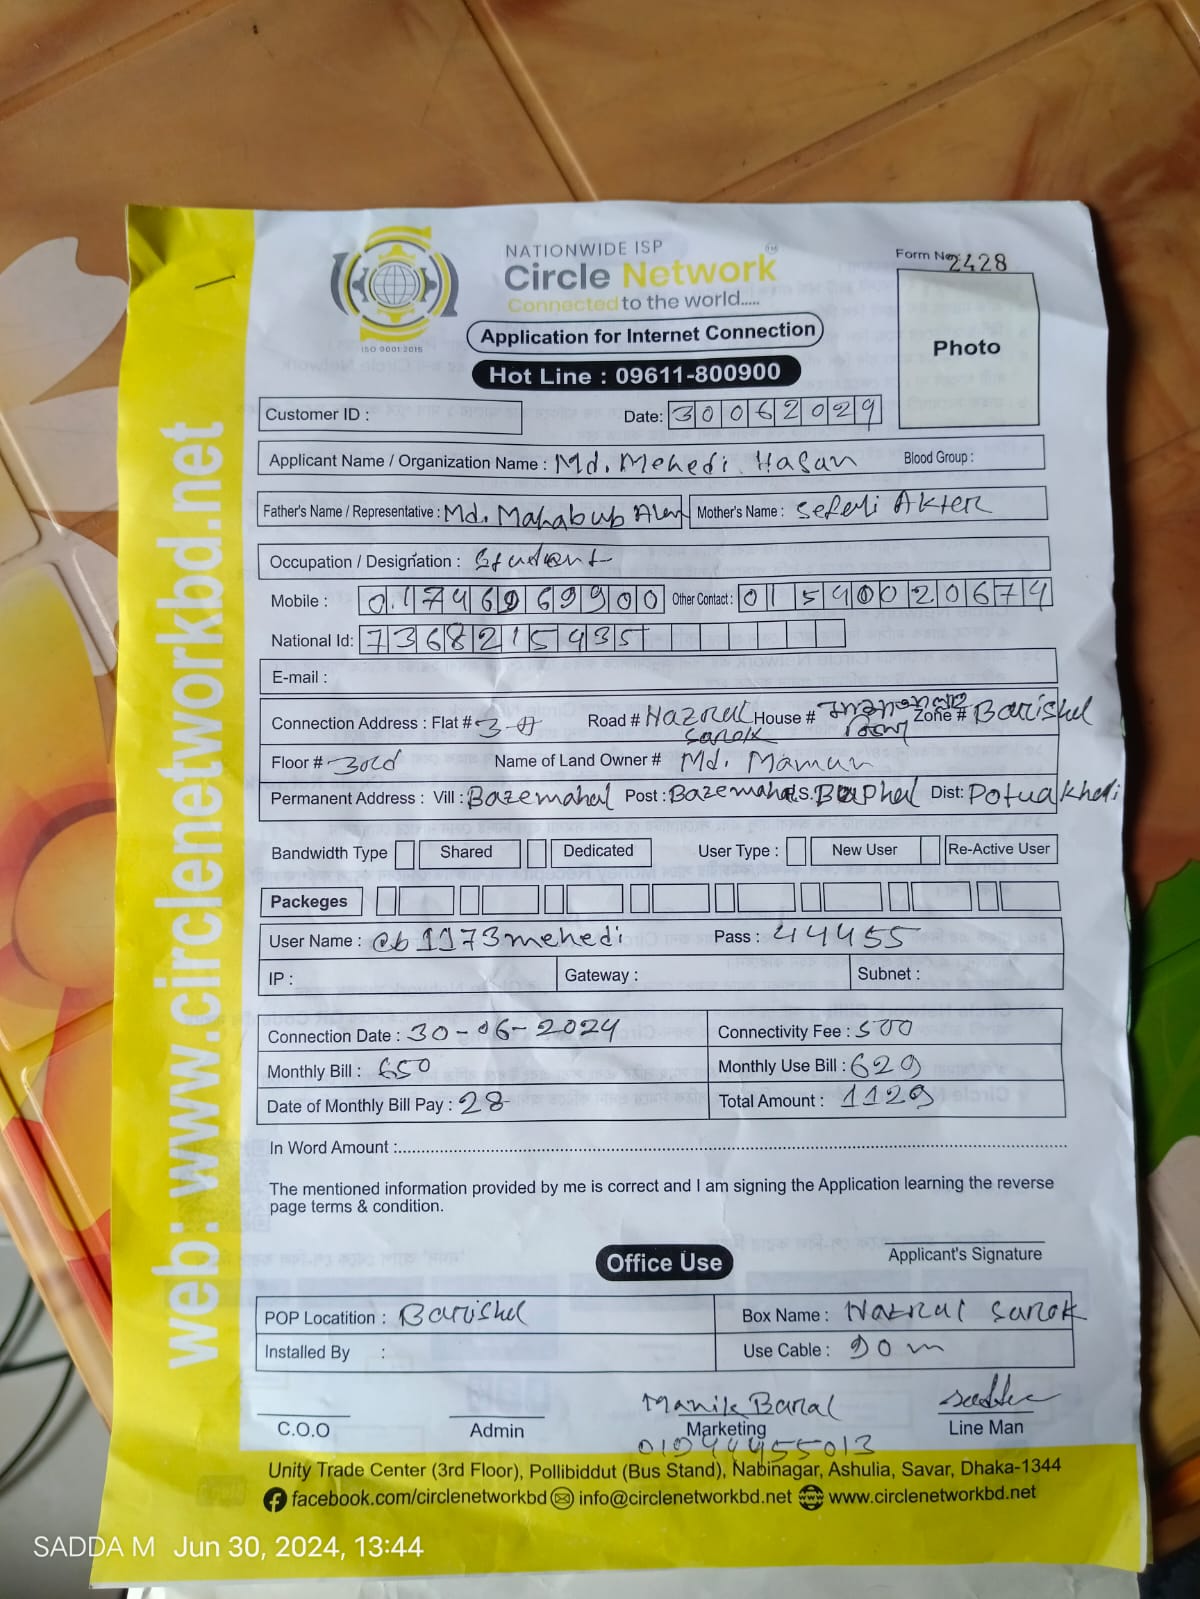 NATIONWIDE ISP
Circle Network
TM
Connected to the world.....
ISO 9001:2015
Form No: 2428
Photo
Application for Internet Connection
Hot Line : 09611-800900
Customer ID :
Date: 30062029
Applicant Name / Organization Name : Md. Mehedi Hasan Blood Group :
Father's Name / Representative : Md. Mahabub Alam Mother's Name : Sefali Akter
Occupation / Designation : Student
Mobile : 01746969900 Other Contact : 01590020674
National Id: 7368215935
E-mail :
Connection Address : Flat # 3-A Road # Nazrul Sarok House # Zone # Barishal
Floor # 3rd Name of Land Owner # Md. Mamun
Permanent Address : Vill : Bazemahal Post : Bazemahal P.S. Bauphal Dist: Potuakhali
Bandwidth Type Shared Dedicated User Type : New User Re-Active User
Packeges
User Name : cb1173mehedi Pass : 44455
IP : Gateway : Subnet :
Connection Date : 30-06-2024 Connectivity Fee : 500
Monthly Bill : 650 Monthly Use Bill : 629
Date of Monthly Bill Pay : 28 Total Amount : 1129
In Word Amount :
The mentioned information provided by me is correct and I am signing the Application learning the reverse
page terms & condition.
Applicant's Signature
Office Use
POP Locatition : Barishal Box Name : Nazrul Sarok
Installed By : Use Cable : 90 m
Manik Baral
C.O.O Admin Marketing Line Man
Unity Trade Center (3rd Floor), Pollibiddut (Bus Stand), Nabinagar, Ashulia, Savar, Dhaka-1344
facebook.com/circlenetworkbd info@circlenetworkbd.net www.circlenetworkbd.net
web: www.circlenetworkbd.net
SADDA M Jun 30, 2024, 13:44